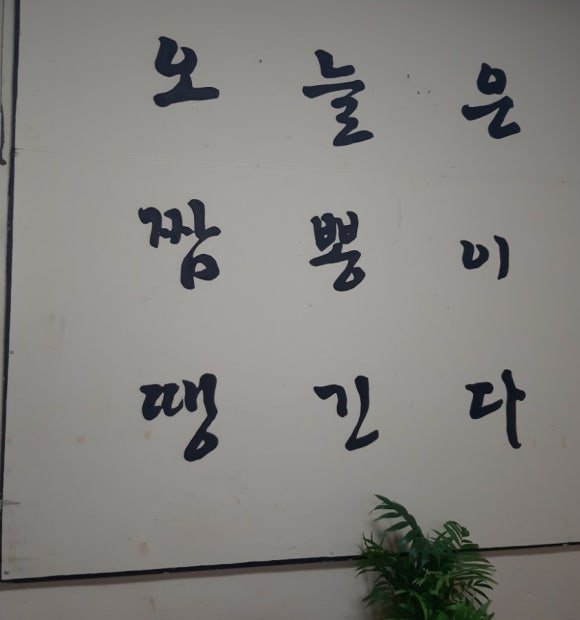 오늘은
짬뽕이
땡긴다